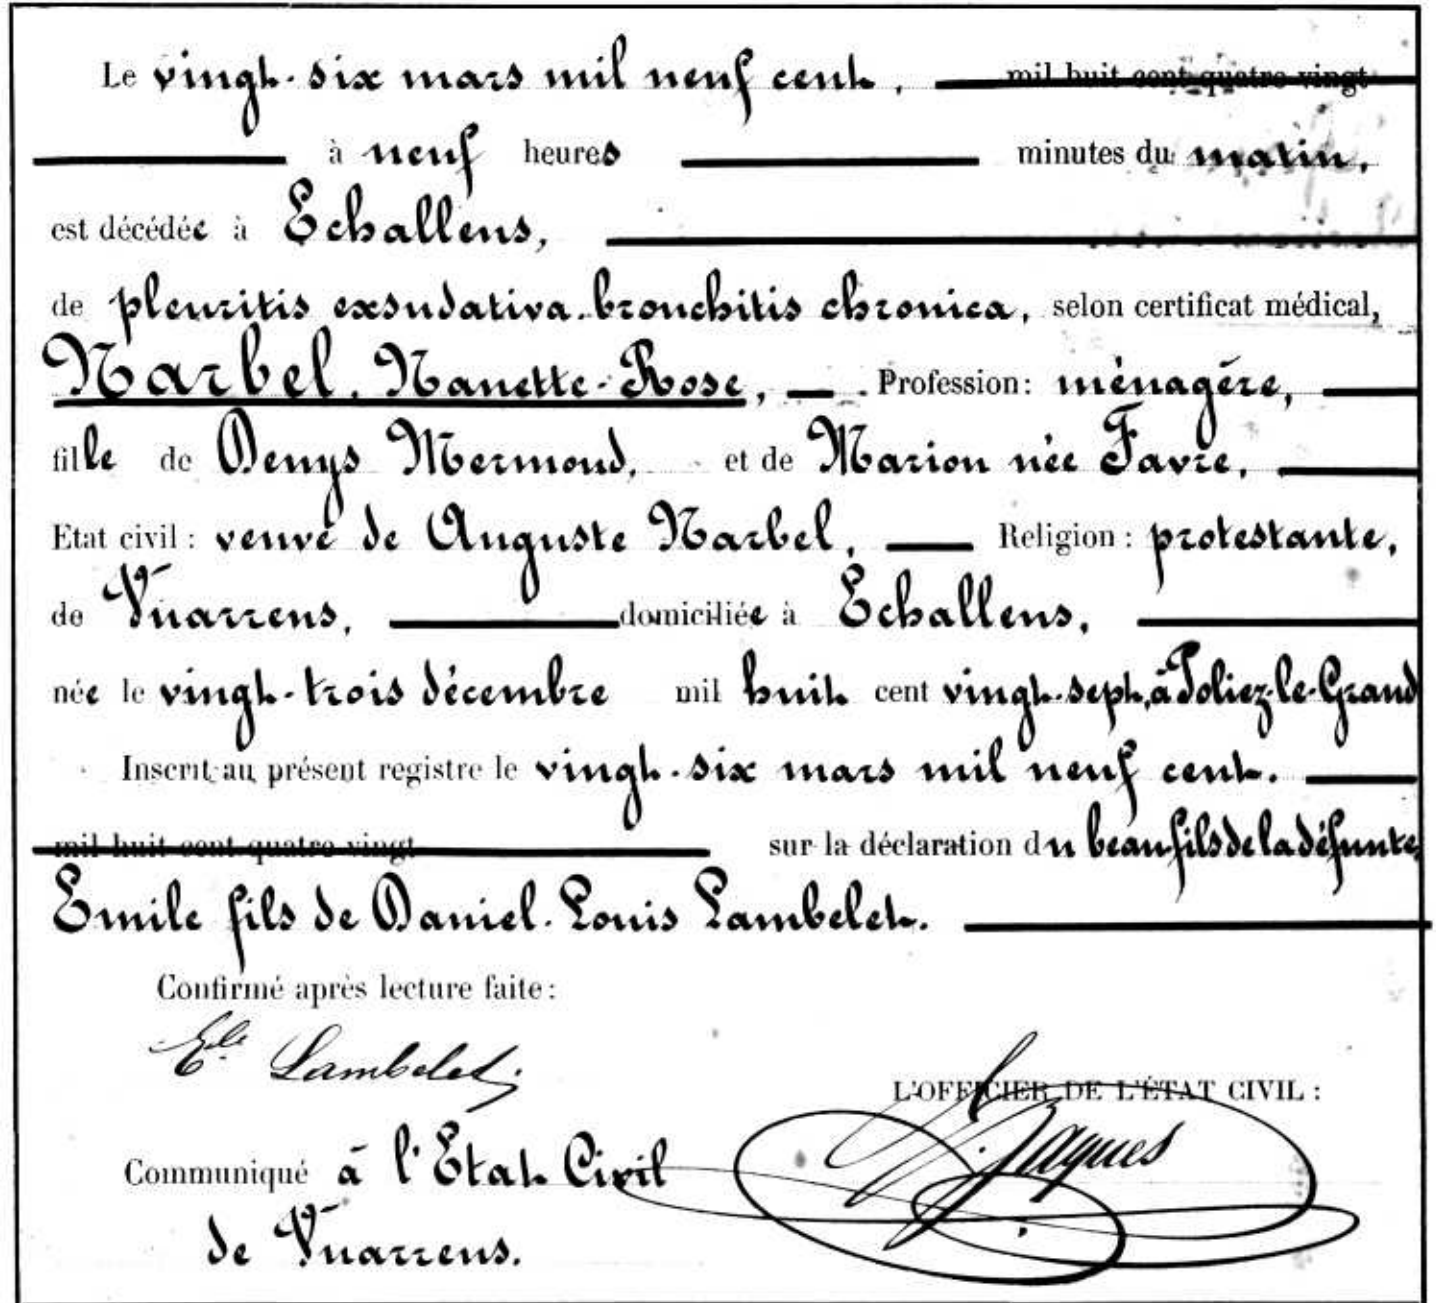 Le vingt-six mars mil neuf cent, mil huit cent quatre vingt
à neuf heures minutes du matin,
est décédée à Echallens,
de pleuritis exsudativa-bronchitis chronica, selon certificat médical,
Narbel, Nanette-Rose, Profession: ménagère,
fille de Denys Mermoud, et de Marion née Favre,
Etat civil: veuve de Auguste Narbel, Religion: protestante,
de Vuarrens, domiciliée à Echallens,
née le vingt-trois décembre mil huit cent vingt-sept, à Poliez-le-Grand
Inscrit au présent registre le vingt-six mars mil neuf cent.
mil huit cent quatre vingt sur la déclaration du beau fils de la défunte,
Emile fils de Daniel-Louis Lambelet.
Confirmé après lecture faite:
Ele Lambelet
L'OFFICIER DE L'ÉTAT CIVIL:
Jaques
Communiqué à l'Etat Civil
de Vuarrens.